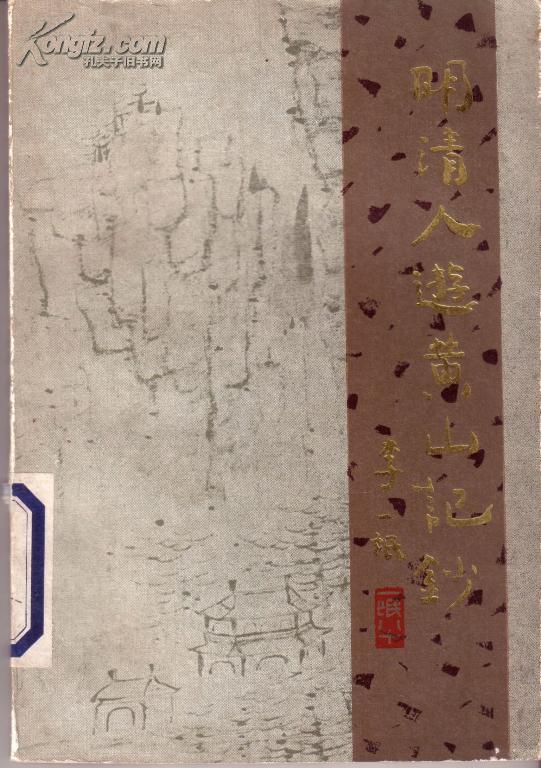 Kongfz.com
孔夫子旧书网
明清人遊黄山記鈔
李一氓
一氓八十